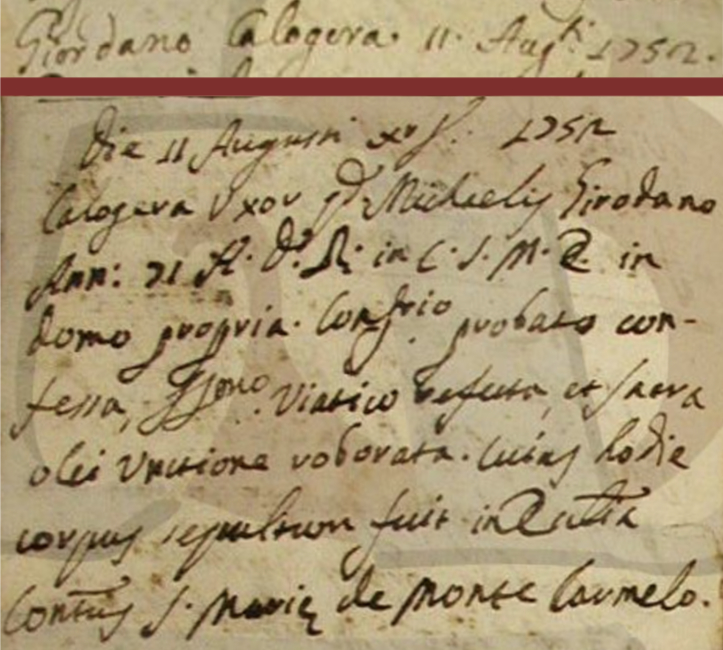 Giordano Calogera. 11. Aug.ti 1752.
Die 11 Augusti xv Ind. 1752
Calogera Uxor qd. Michaelis Girodano
Ann: 71 A. D. R. in C. S. M. E. in
domo propria. Confrio. probato con-
fessa, Ssmo. Viatico refecta, et sacra
olei Unctione roborata. cuius hodie
corpus sepultum fuit in Eccla
Contus S. Marię de Monte Carmelo.